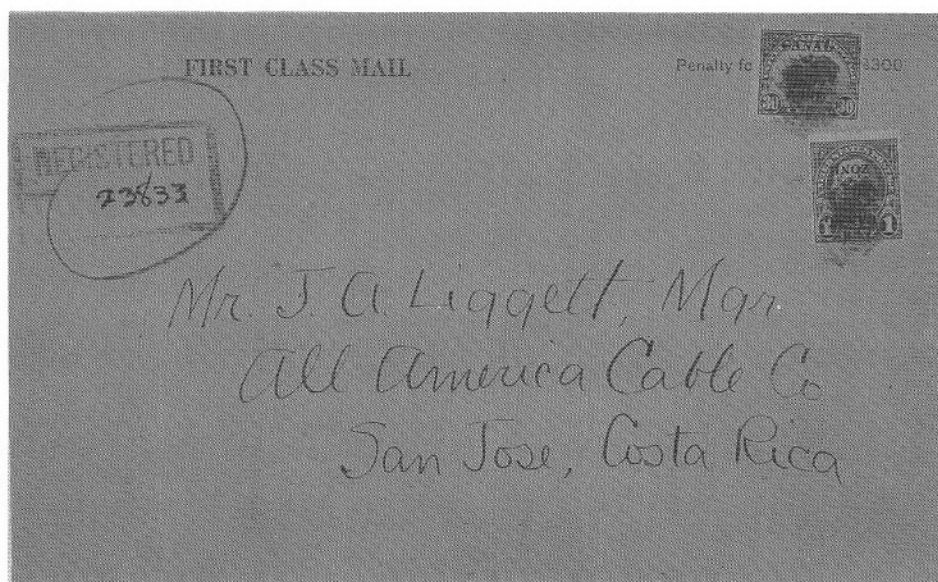 FIRST CLASS MAIL
Penalty fo $300
CANAL
30 30
REGISTERED
23833
ZONE
1 1
Mr. J. A. Liggett, Mgr.
All America Cable Co
San Jose, Costa Rica